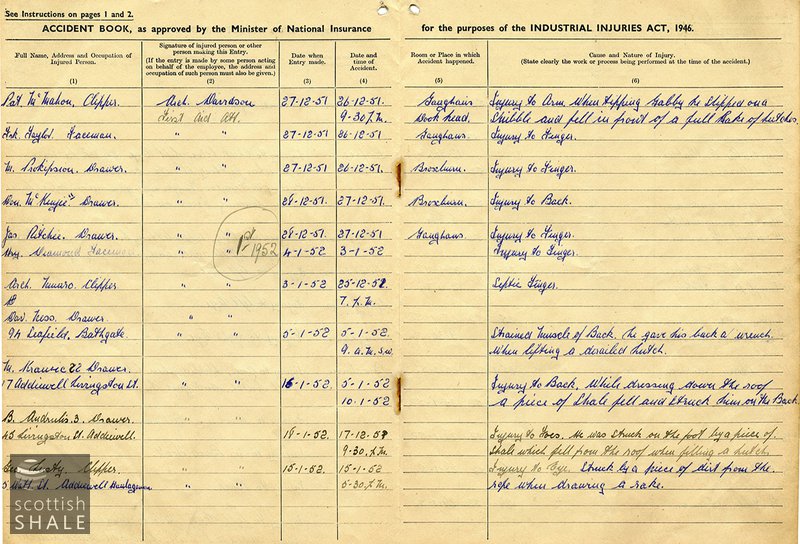 See Instructions on pages 1 and 2.
ACCIDENT BOOK, as approved by the Minister of National Insurance for the purposes of the INDUSTRIAL INJURIES ACT, 1946.
Full Name, Address and Occupation of Injured Person.
(1)
Signature of injured person or other person making this Entry.
(If the entry is made by some person acting on behalf of the employee, the address and occupation of such person must also be given.)
(2)
Date when Entry made.
(3)
Date and time of Accident.
(4)
Room or Place in which Accident happened.
(5)
Cause and Nature of Injury.
(State clearly the work or process being performed at the time of the accident.)
(6)
Pat. McMahon, Clipper. Arch. Davidson 27-12-51 26-12-51. Injury to Arm when tipping Gabby he slipped on a
First Aid Att. 9-30 P.M. Hook head. and fell in front of a full Rake of hutches.
Taylor. Faceman. " " 27-12-51 26-12-51 Injury to Finger.
M. Drawer. " " 27-12-51 26-12-51. Broxburn. Injury to Finger.
Don. McKenzie Drawer. " " 28-12-51. 27-12-51. Broxburn. Injury to Back.
Jas Ritchie. Drawer. " " 28-12-51. 27-12-51 Injury to Finger.
Faceman " " 1952 4-1-52 3-1-52 Injury to Finger.
Arch. Munro. Clipper " " 3-1-52 Septic Finger.
7. P.M.
Dav. Ness. Drawer. " "
94 Seafield, Bathgate. " " 5-1-52. 5-1-52. Strained Muscle of Back. he gave his back a wrench.
9. A.M. when lifting a derailed hutch.
M. Drawer.
17 Addiewell Livingston St. " " 16-1-52. 5-1-52 Injury to Back. While dressing down the roof
10.1-52 a piece of Shale fell and struck him on the Back.
B. Drawer. " "
45 Livingston St. Addiewell. 17-12-51 Injury to Toes. He was struck on the foot by a piece of
9-30. P.M. Shale which fell from the roof when filling a hutch.
Clipper. " " 15-1-52. 15-1-52 Injury to Eye. Struck by a piece of dirt from the
5 Watt St. Addiewell 5-30. P.M. rope when drawing a rake.
scottish
SHALE